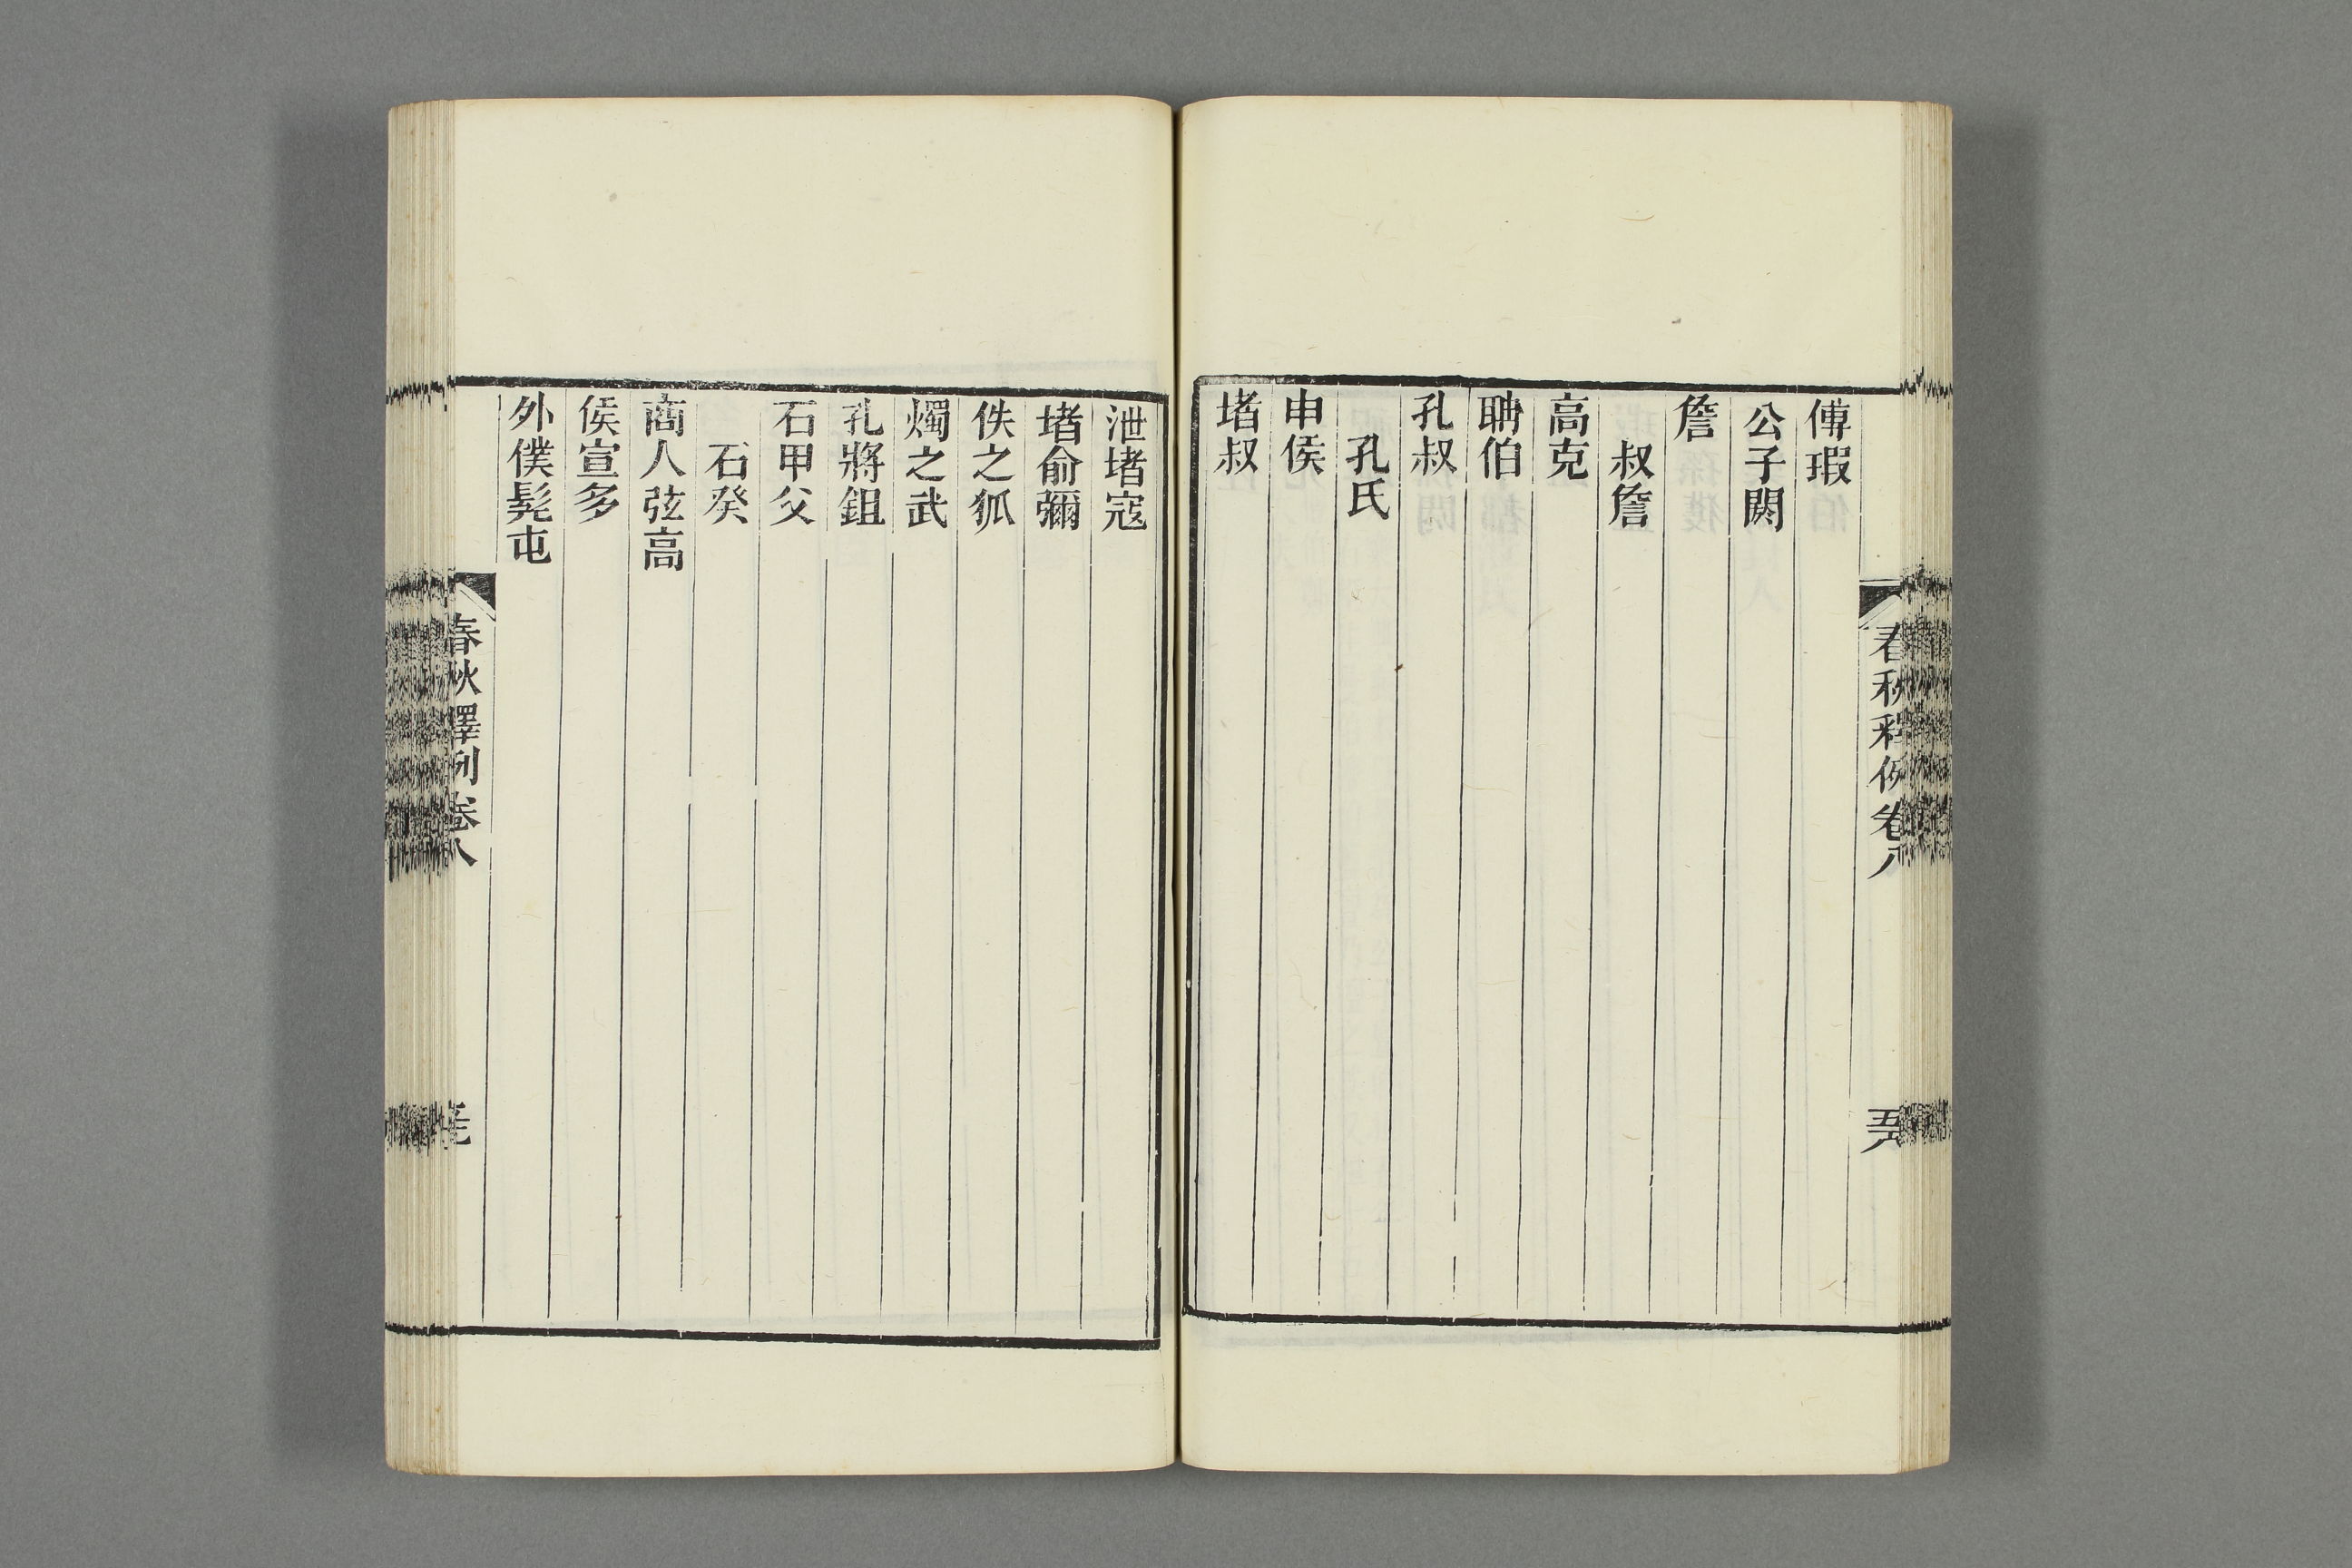 春秋釋例卷八
傅瑕
公子閼
詹
叔詹
高克
聃伯
孔叔
孔氏
申侯
堵叔
泄堵寇
堵俞彌
佚之狐
燭之武
孔將鉏
石甲父
石癸
商人弦高
侯宣多
外僕髡屯
春秋釋例卷八